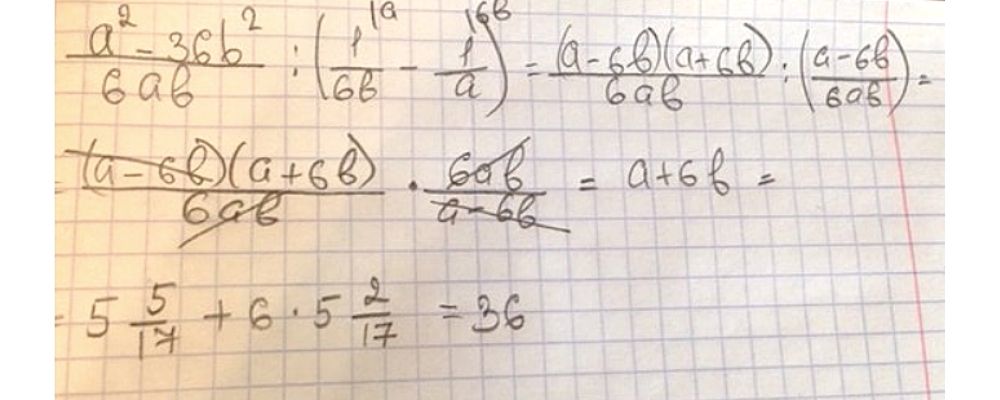 (a² - 36b²)/(6ab) : (1/(6b) |a - 1/a |6b) = ((a-6b)(a+6b))/(6ab) : ((a-6b)/(6ab)) =
= ((a-6b)(a+6b))/(6ab) · (6ab)/(a-6b) = a+6b =
= 5 5/17 + 6 · 5 2/17 = 36